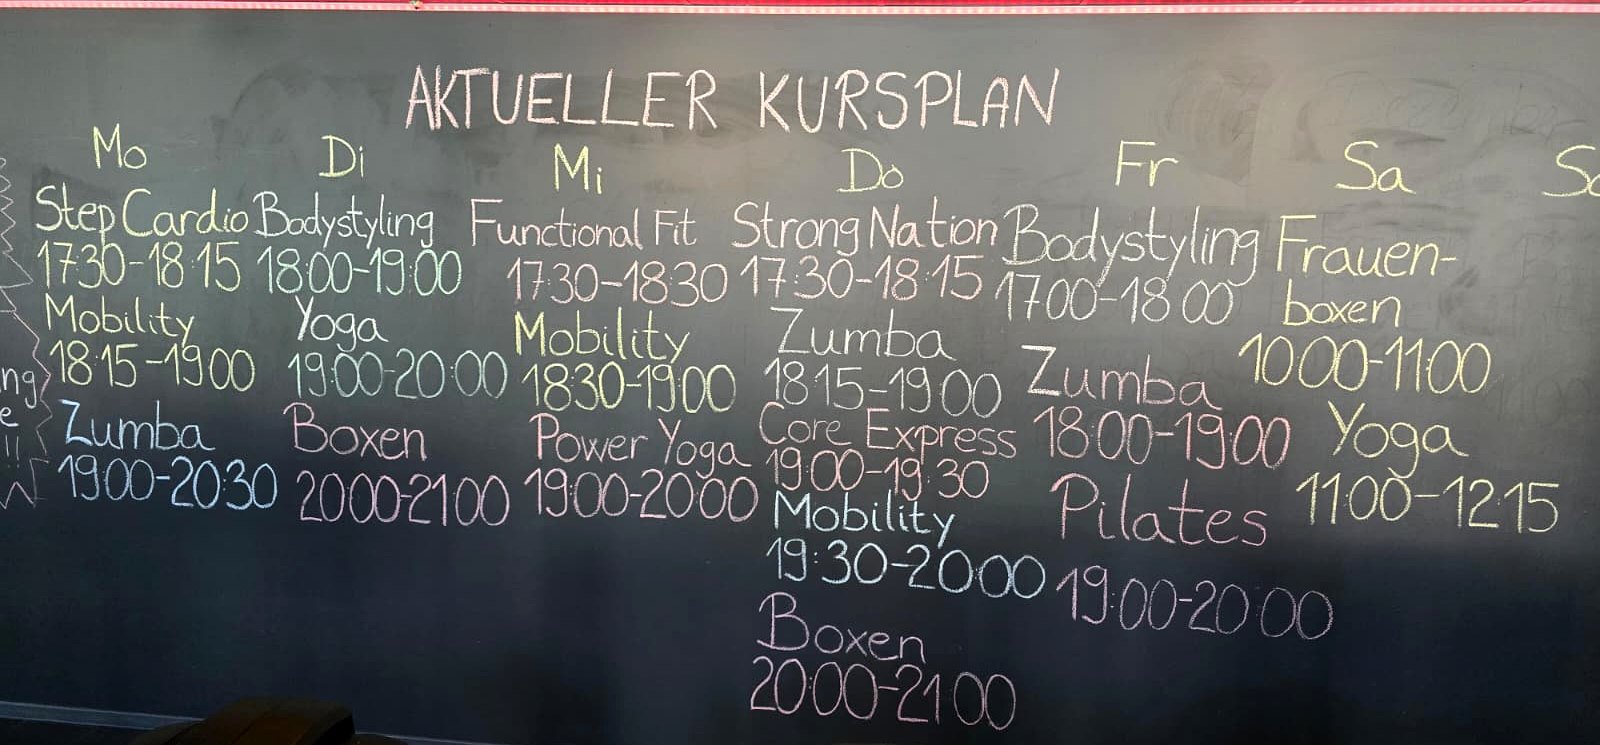 AKTUELLER KURSPLAN
Mo
Step Cardio
17:30-18:15
Mobility
18:15-19:00
Zumba
19:00-20:30
Di
Bodystyling
18:00-19:00
Yoga
19:00-20:00
Boxen
20:00-21:00
Mi
Functional Fit
17:30-18:30
Mobility
18:30-19:00
Power Yoga
19:00-20:00
Do
Strong Nation
17:30-18:15
Zumba
18:15-19:00
Core Express
19:00-19:30
Mobility
19:30-20:00
Boxen
20:00-21:00
Fr
Bodystyling
17:00-18:00
Zumba
18:00-19:00
Pilates
19:00-20:00
Sa
Frauen-
boxen
10:00-11:00
Yoga
11:00-12:15